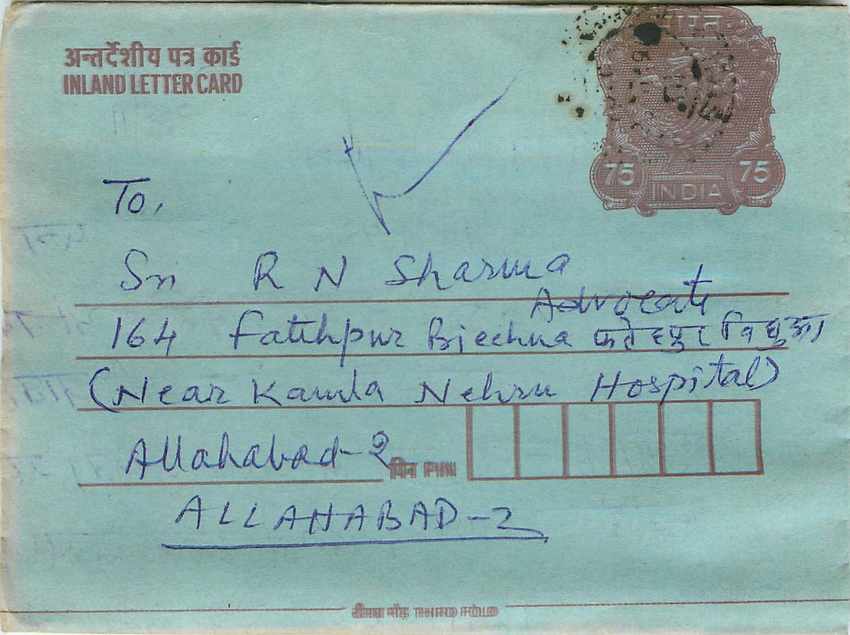 अन्तर्देशीय पत्र कार्ड
INLAND LETTER CARD
भारत
75 INDIA 75
To,
Sri R N Sharma
Advocate
164 Fatehpur Biechua फतेहपुर बिछुआ
(Near Kamla Nehru Hospital)
Allahabad-2
पिन PIN
ALLAHABAD-2
तीसरा मोड़ THIRD FOLD